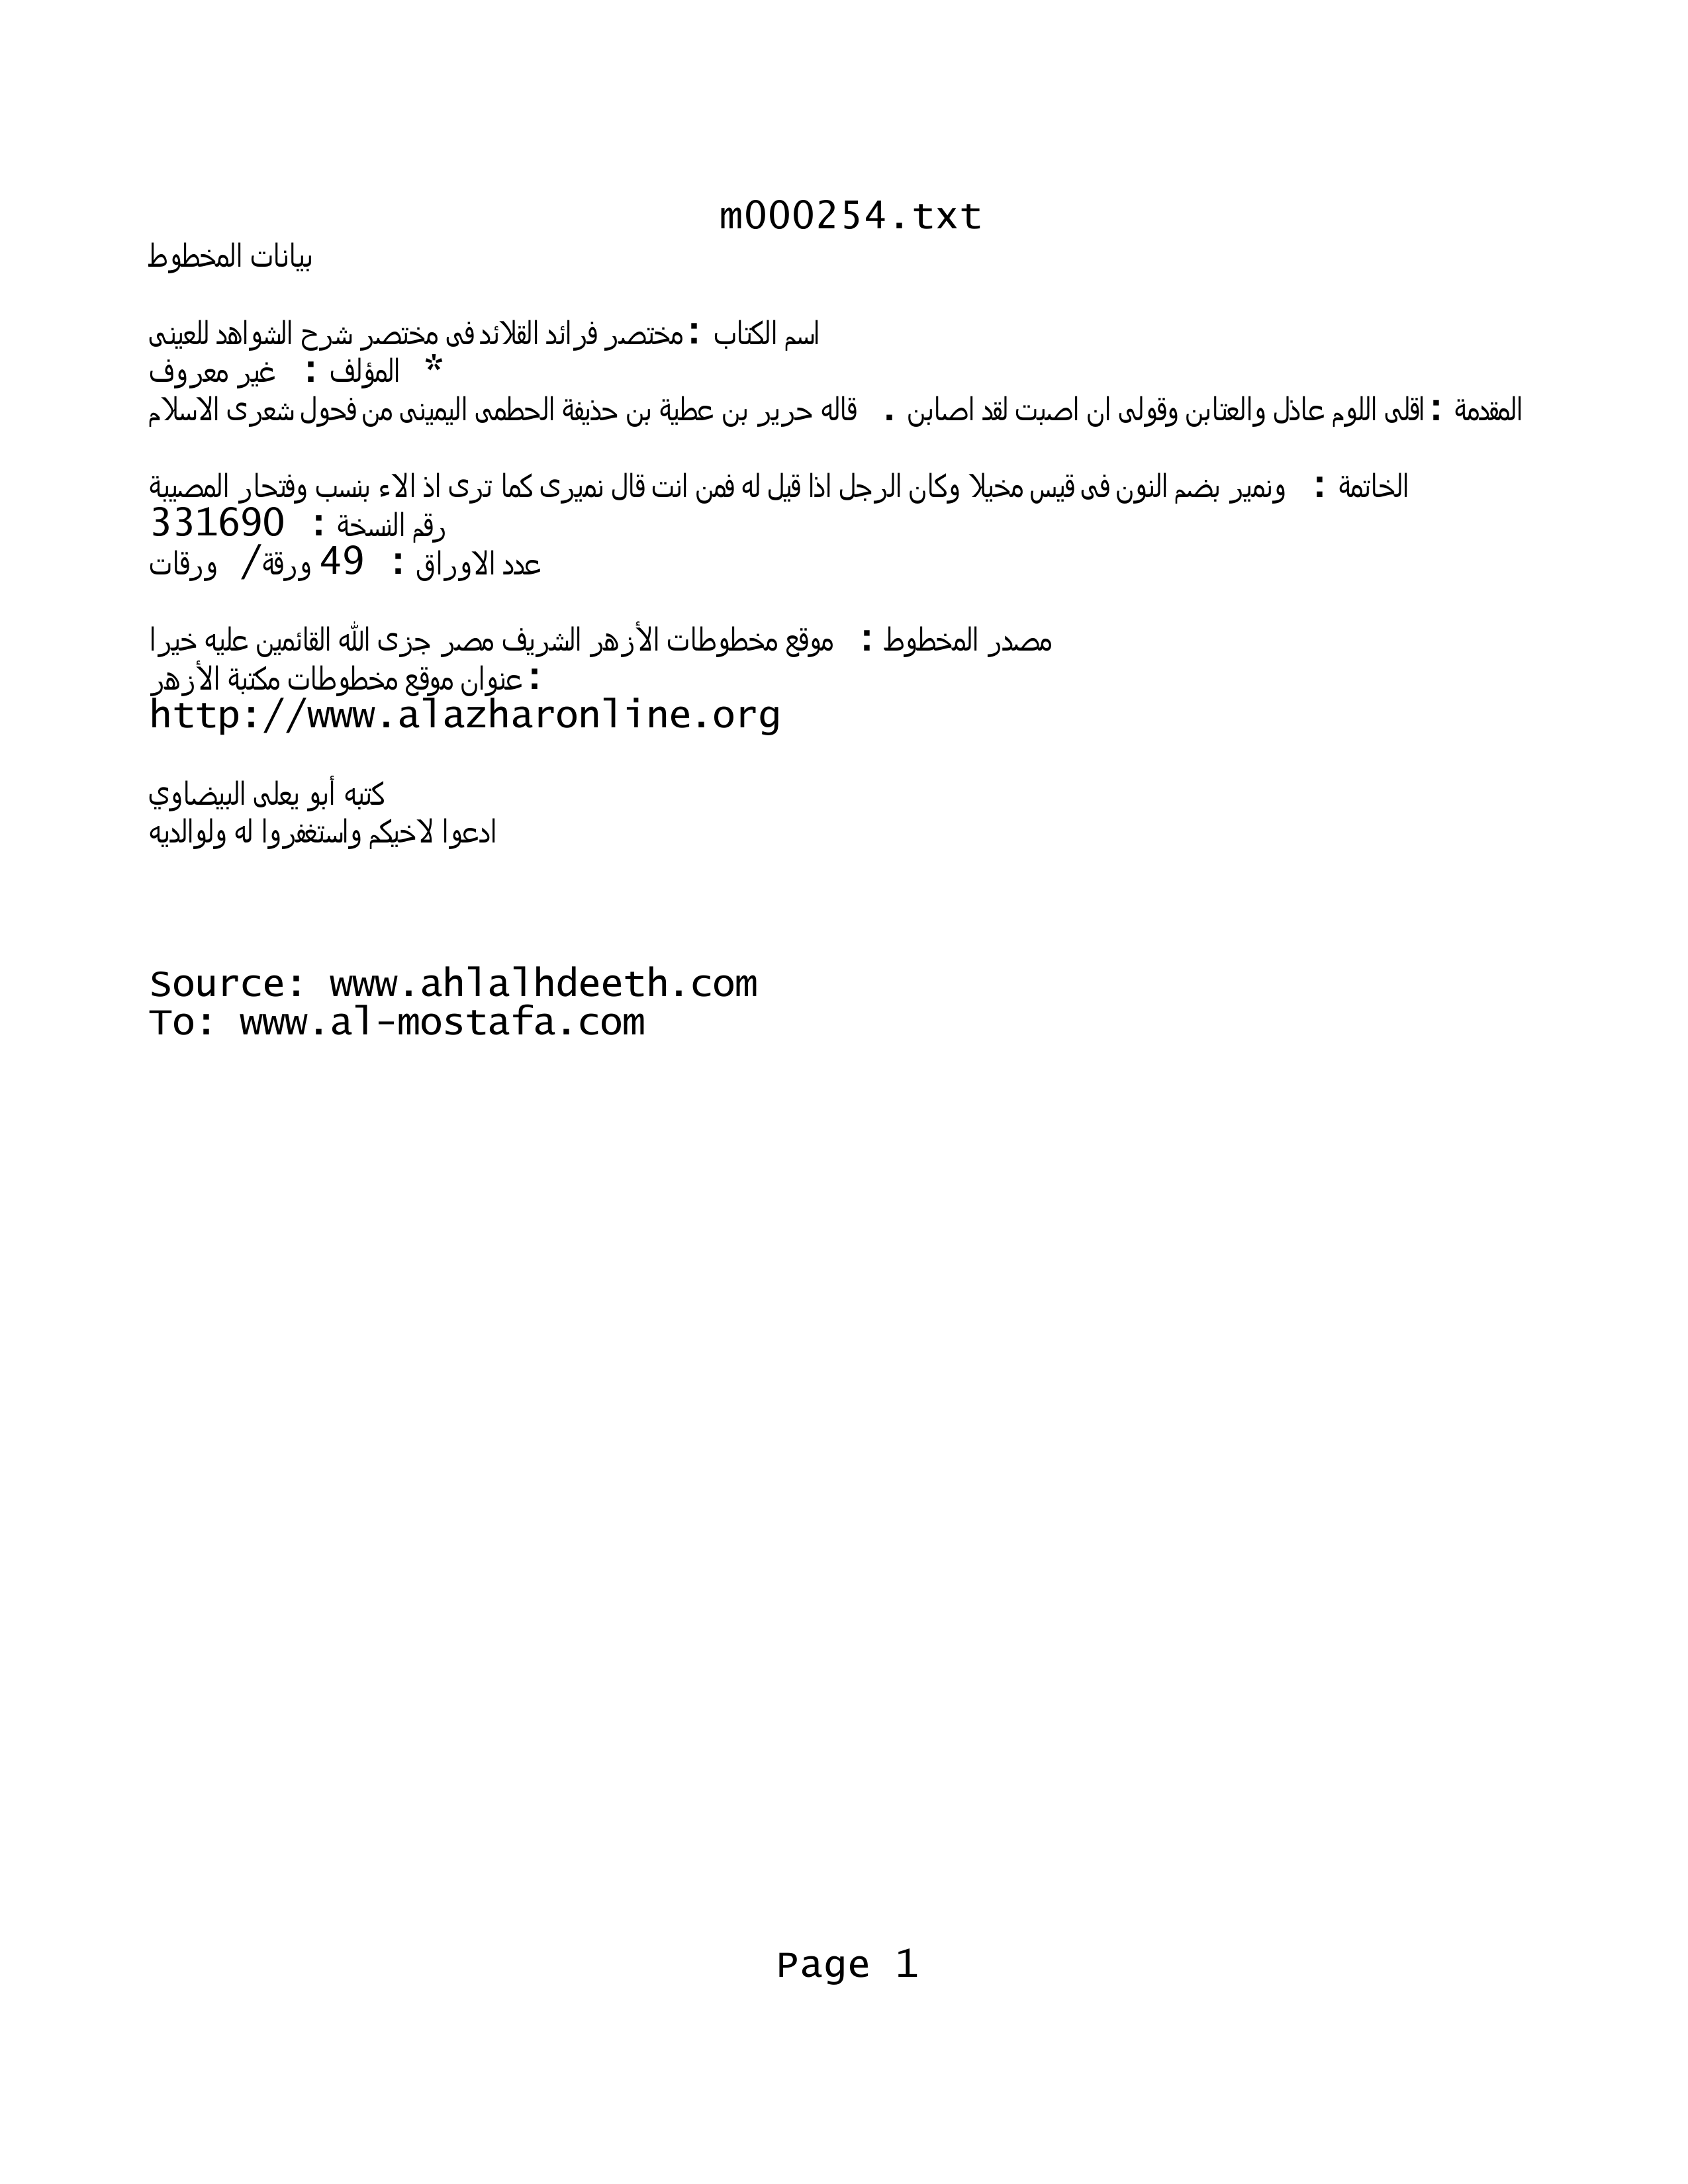 m000254.txt
بيانات المخطوط
اسم الكتاب :مختصر فرائد القلائد فى مختصر شرح الشواهد للعينى
* المؤلف : غير معروف
المقدمة :اقلى اللوم عاذل والعتابن وقولى ان اصبت لقد اصابن . قاله حرير بن عطية بن حذيفة الحطمى اليمينى من فحول شعرى الاسلام
الخاتمة : ونمير بضم النون فى قيس مخيلا وكان الرجل اذا قيل له فمن انت قال نميرى كما ترى اذ الاء بنسب وفتحار المصيبة
رقم النسخة : 331690
عدد الاوراق : 49 ورقة/ ورقات
مصدر المخطوط : موقع مخطوطات الأزهر الشريف مصر جزى الله القائمين عليه خيرا
عنوان موقع مخطوطات مكتبة الأزهر:
http://www.alazharonline.org
كتبه أبو يعلى البيضاوي
ادعوا لاخيكم واستغفروا له ولوالديه
Source: www.ahlalhdeeth.com
To: www.al-mostafa.com
Page 1